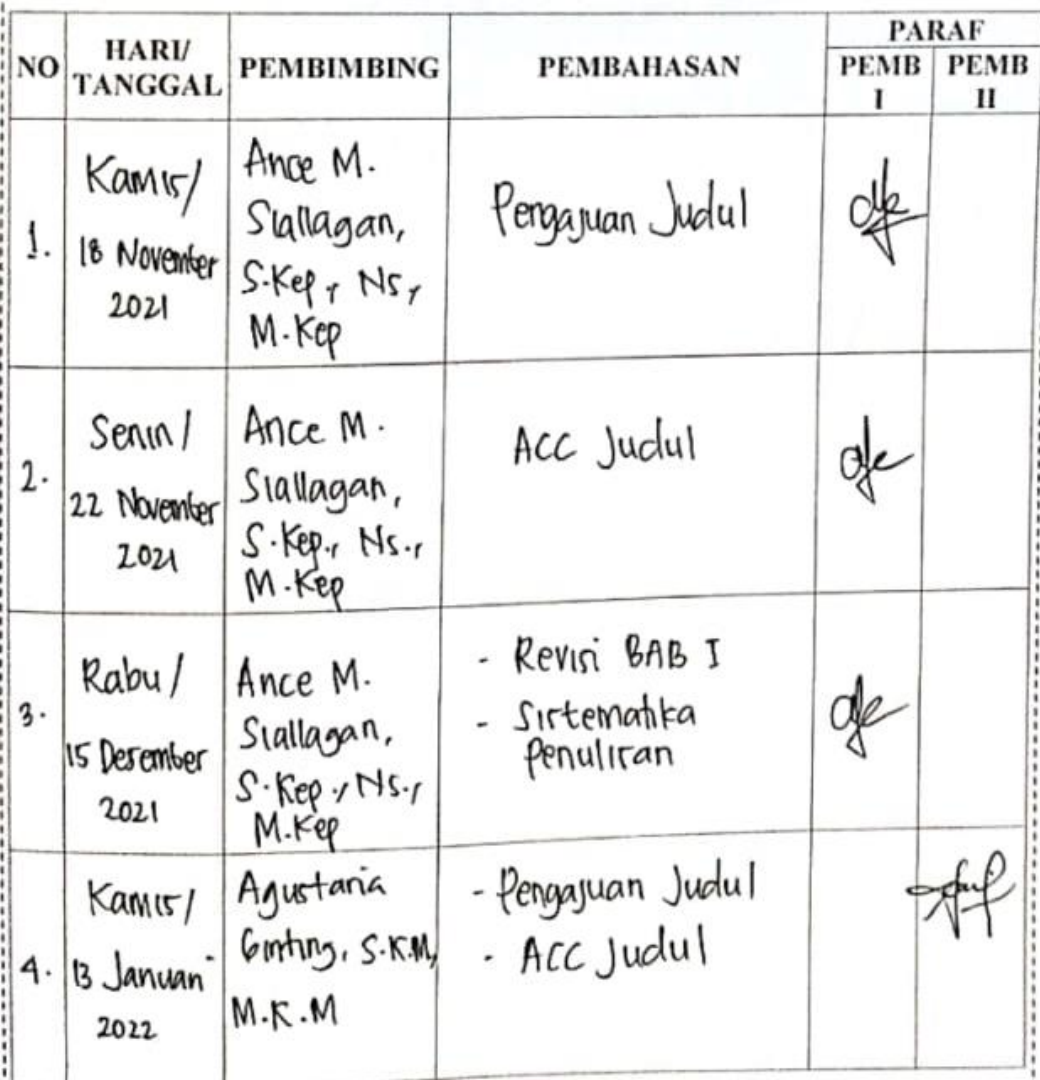 NO HARI/ TANGGAL PEMBIMBING PEMBAHASAN PARAF
PEMB I PEMB II
1.
Kamis/
18 November
2021
Ance M.
Siallagan,
S.Kep, Ns,
M.Kep
Pengajuan Judul
2.
Senin/
22 November
2021
Ance M.
Siallagan,
S.Kep., Ns.,
M.Kep
ACC Judul
3.
Rabu/
15 Desember
2021
Ance M.
Siallagan,
S.Kep., Ns.,
M.Kep
- Revisi BAB I
- Sistematika
Penulisan
4.
Kamis/
13 Januari
2022
Agustaria
Ginting, S.K.M,
M.K.M
- Pengajuan Judul
- ACC Judul